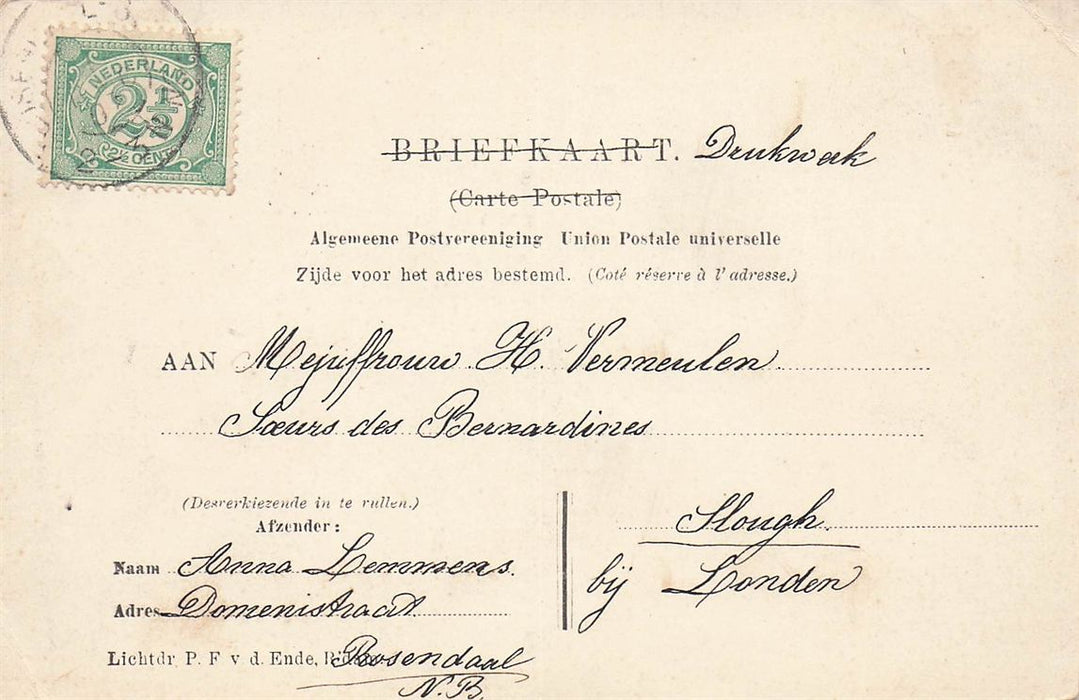 NEDERLAND
2½
2½ CENT
BRIEFKAART. Drukwerk
(Carte Postale)
Algemeene Postvereeniging Union Postale universelle
Zijde voor het adres bestemd. (Coté réserre à l'adresse.)
AAN Mejuffrouw H. Vermeulen
Sœurs des Bernardines
(Desverkiezende in te rullen.)
Afzender:
Naam Anna Lemmens.
Adres Domenistraat
Rosendaal
N.B.
Lichtdr. P. F v. d. Ende,
Slough.
bij Londen